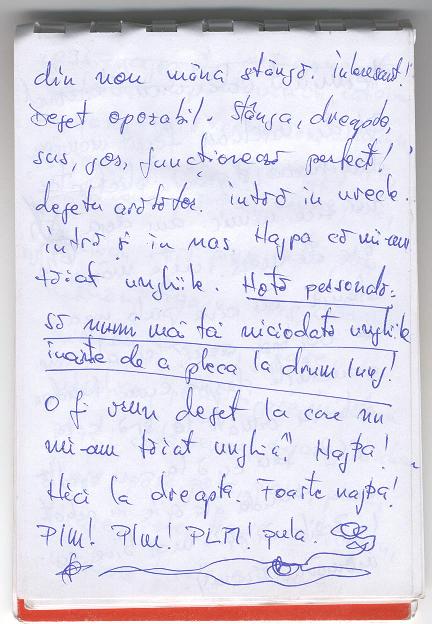 din nou mâna stângă. interesant!
Deget opozabil. Stânga, dreapta,
sus, jos, funcționează perfect!
degetu arătător. intră in ureche.
intră și in nas. Nașpa că mi-am
tăiat unghiile. Notă personală:
să numi mai tai niciodată unghiile
înainte de a pleca la drum lung!
O fi vreun deget la care nu
mi-am tăiat unghia? Nașpa!
Nici la dreapta. Foarte nașpa!
Plm! Plm! PLM! pula.